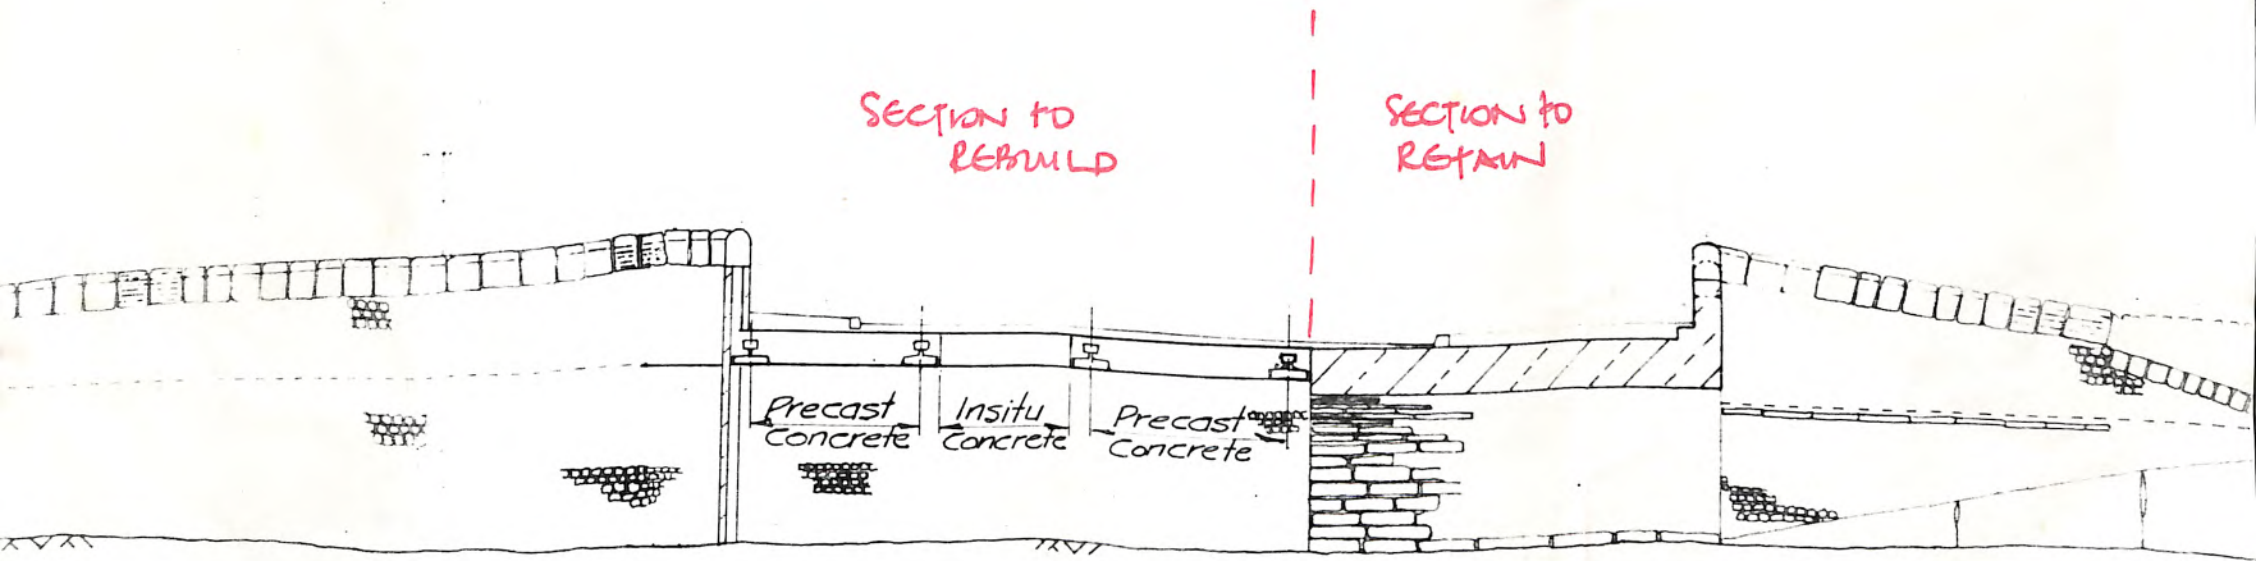 SECTION TO
REBUILD
SECTION TO
RETAIN
Precast
Concrete
Insitu
Concrete
Precast
Concrete